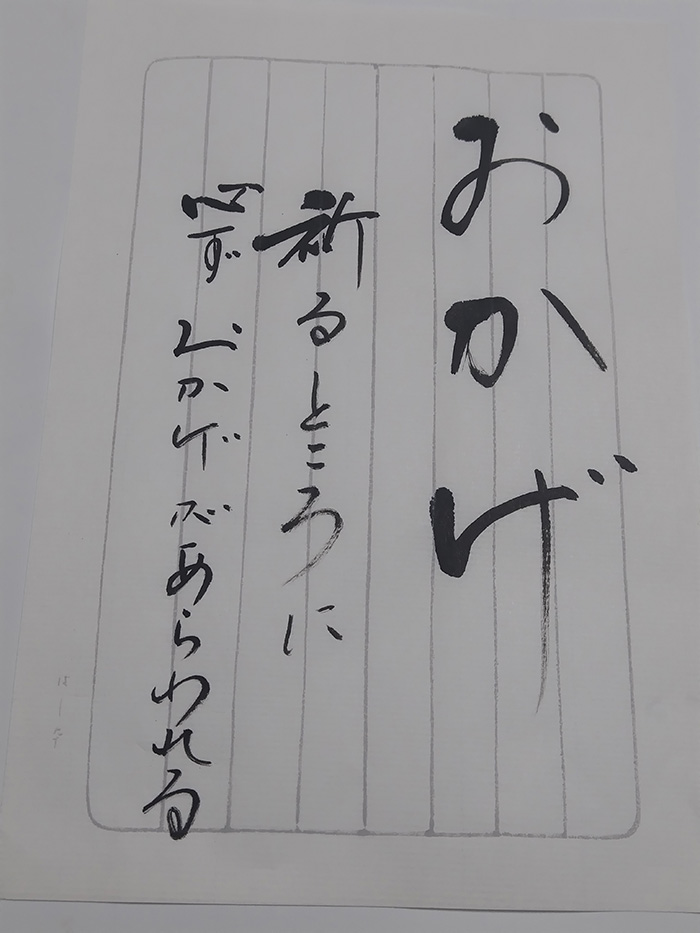 おかげ
祈るところに
必ずおかげがあらわれる